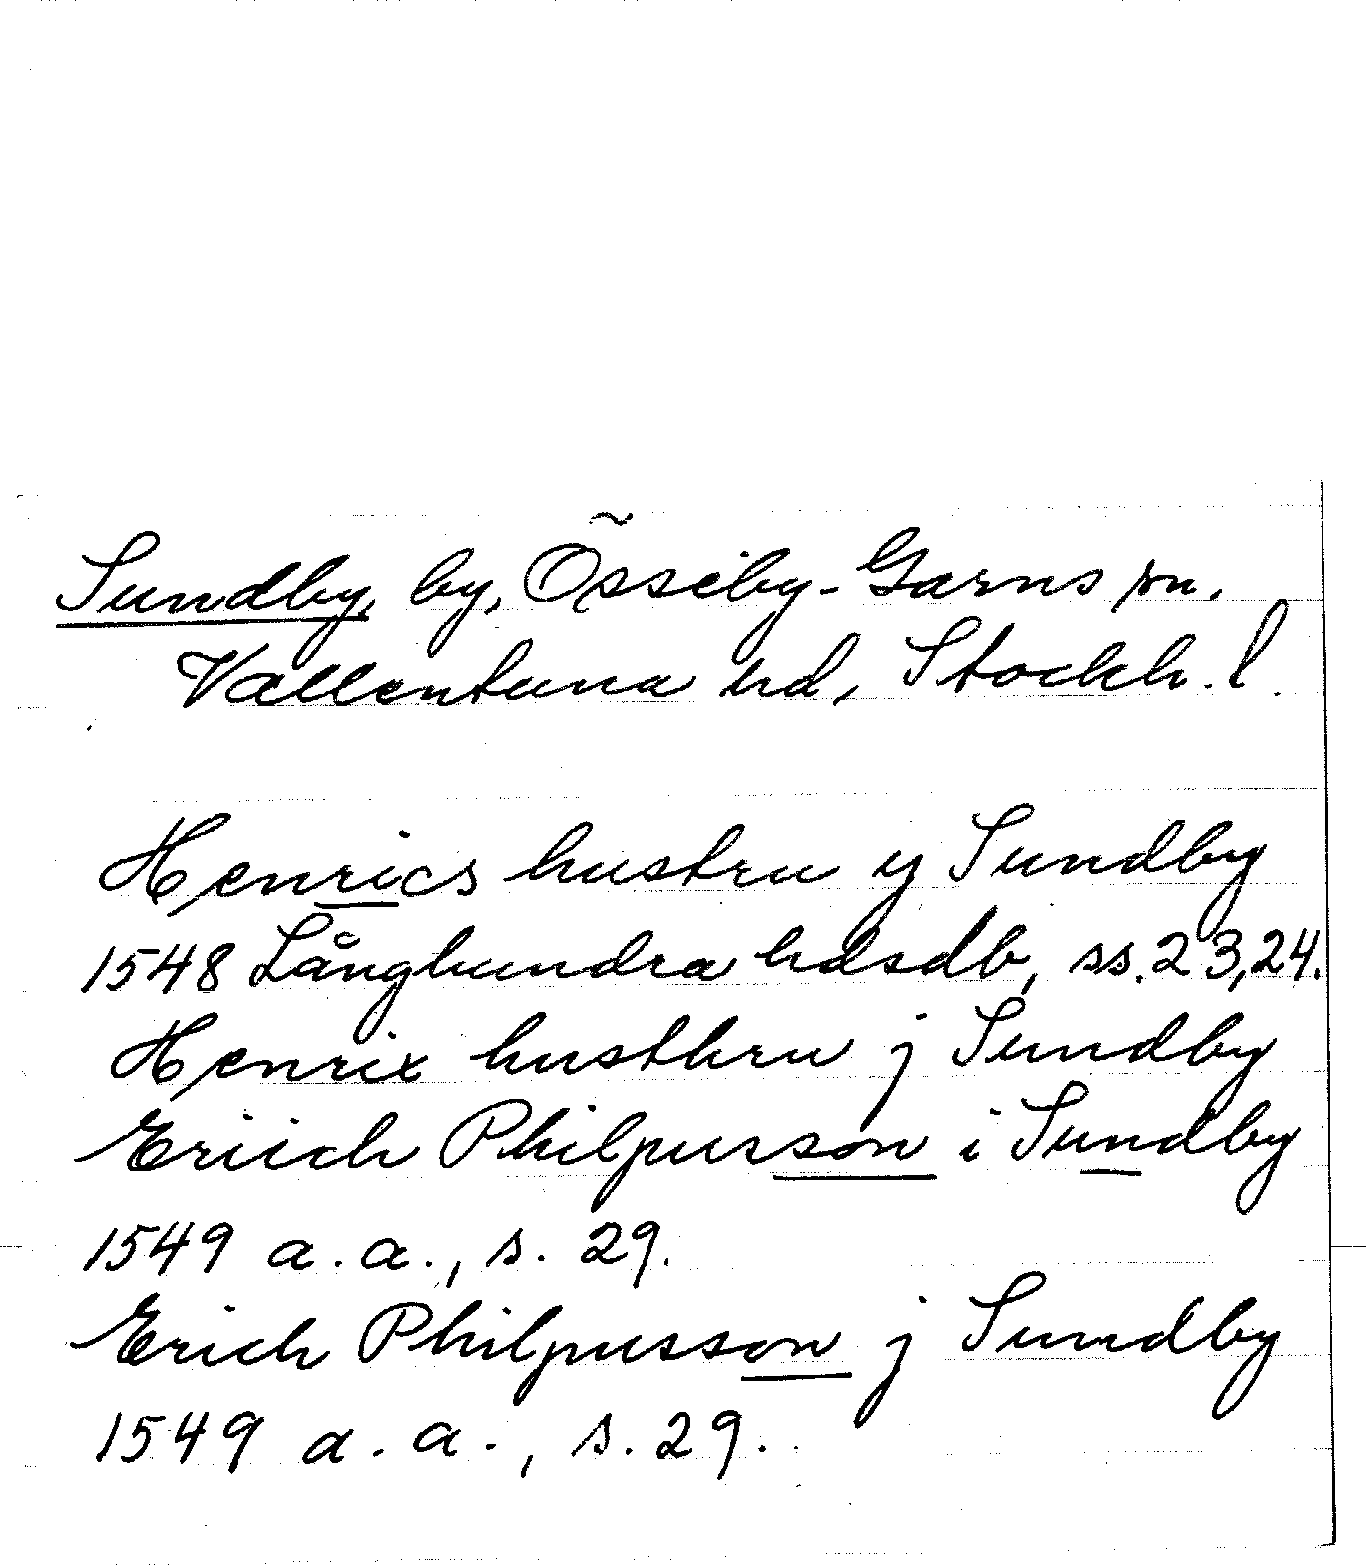 Sundby, by, Össeby-Garns sn.
Vallentuna hd, Stockh. l.
Henrics hustru y Sundby
1548 Långhundra hdsdb, ss. 23,24.
Henrix husthru j Sundby
Eriich Philpusson i Sundby
1549 a.a., s. 29.
Erich Philpusson j Sundby
1549 a.a., s. 29.